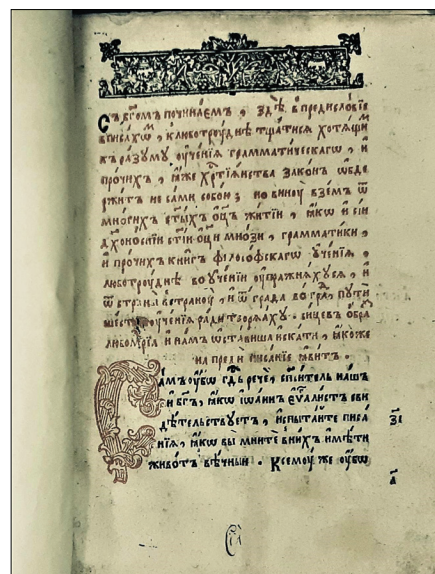 Съ бг҃омъ починаемъ , здѣ в предисловїе
вписахѡⷨ , к люботрꙋднѣ тщатисѧ хотѧщиⷨ
къ разꙋмꙋ ᲂу҆ченїѧ грамматическагѡ , и
прочихъ , ꙗ҆́же хрⷭ҇тїѧнства законъ ѡ҆бде
ржитъ не сами собою ; но винꙋ̀ вземъ ѿ
многихъ ст҃ыхъ ѻ҆ц҃ъ житїи , ꙗ҆́кѡ и҆ сїи
дх҃оноснїи ст҃їи ѻ҆ц҃и мнози , грамматики ,
и҆ прочихъ книгъ философскагѡ ᲂу҆ченїѧ ,
люботрꙋднѣ во ᲂу҆ченїи ᲂу҆пражнѧхꙋсѧ , и҆
ѿ страны в странꙋ , и҆ ѿ града во граⷣ , пꙋти
шествоⷡ ᲂу҆ченїѧ ради творѧхꙋ . сицевъ ѻ҆бра
любомꙋдрїѧ и҆ намъ ѡ҆ставиша и҆скати , ꙗ҆коже
на преди писанїе ꙗ҆витъ .
Самъ ᲂу҆́бѡ гдⷭ҇ь рече , сп҃ситель нашъ
и҆ бг҃ъ , ꙗ҆́кѡ і҆ѡаннъ є҆ѵⷢ҇листъ сви
дѣтельствꙋетъ , и҆спытайте писа
нїѧ , ꙗ҆́кѡ вы мните в нихъ и҆мѣти
животъ вѣчный . К семꙋ́ же ᲂу҆́бѡ
а҃